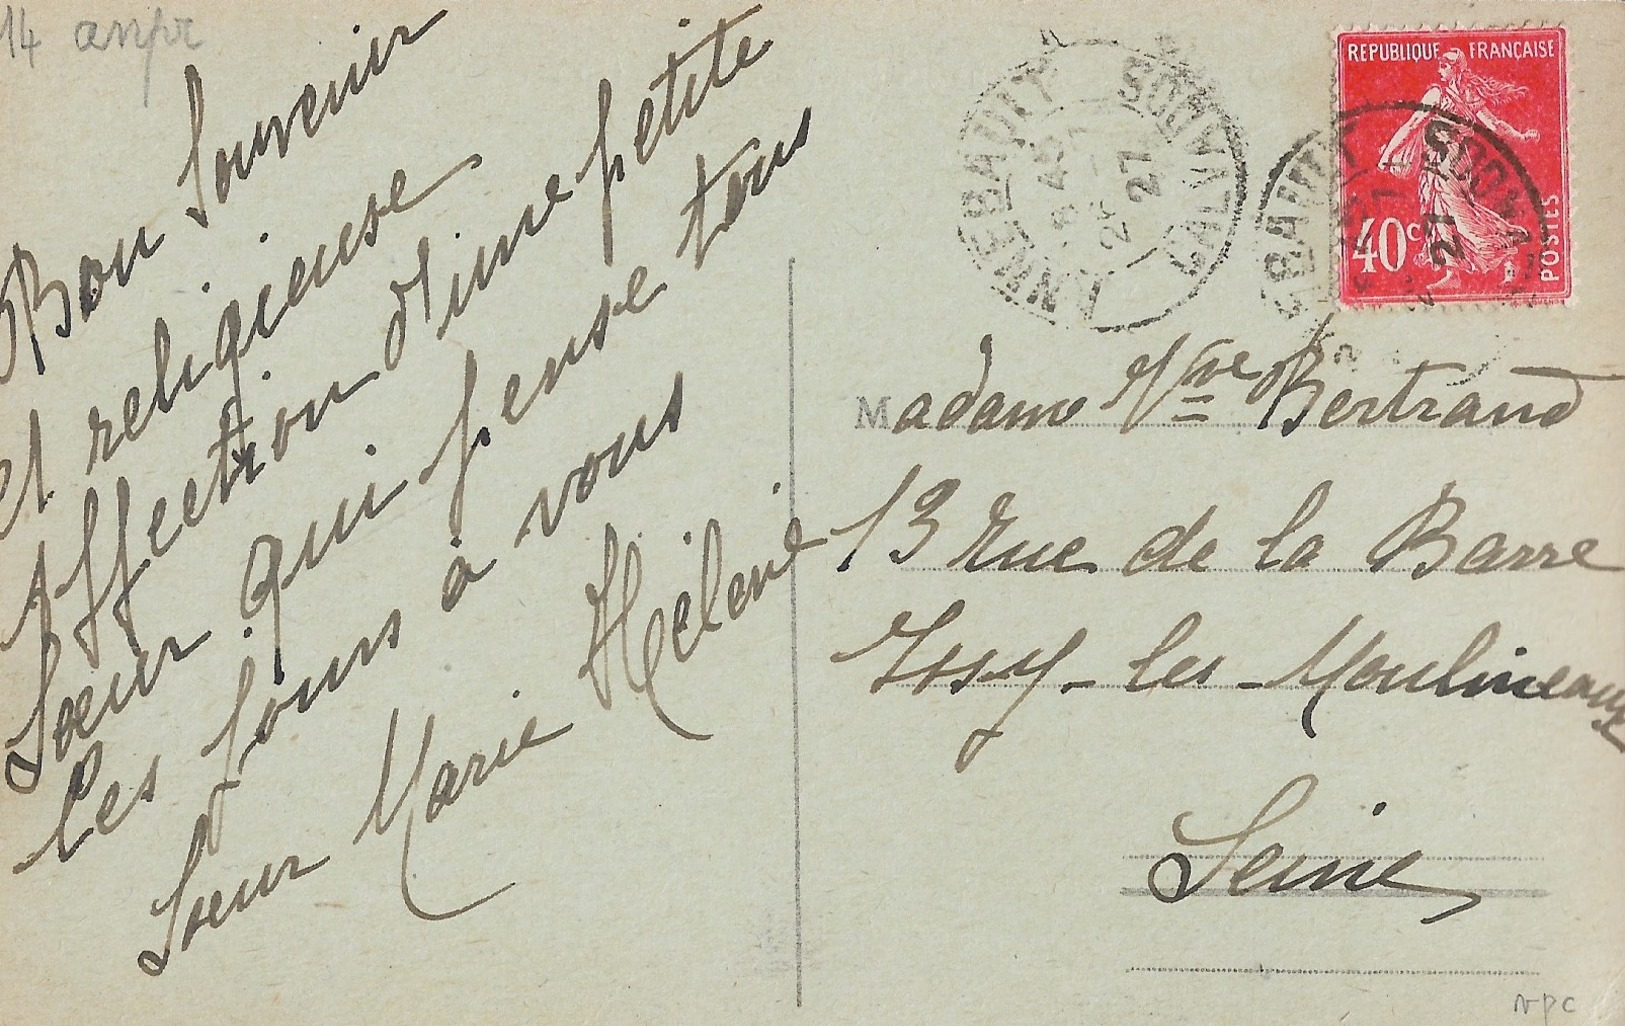 14 anpr
Bon Souvenir
et religieuse
Affection d'une petite
Sœur qui pense tous
les jours à vous
Sœur Marie Hélène
ANNEBAULT
CALVADOS
27
REPUBLIQUE FRANÇAISE
40c
POSTES
Madame Vve Bertrand
13 rue de la Barre
Issy-les-Moulineaux
Seine
npc